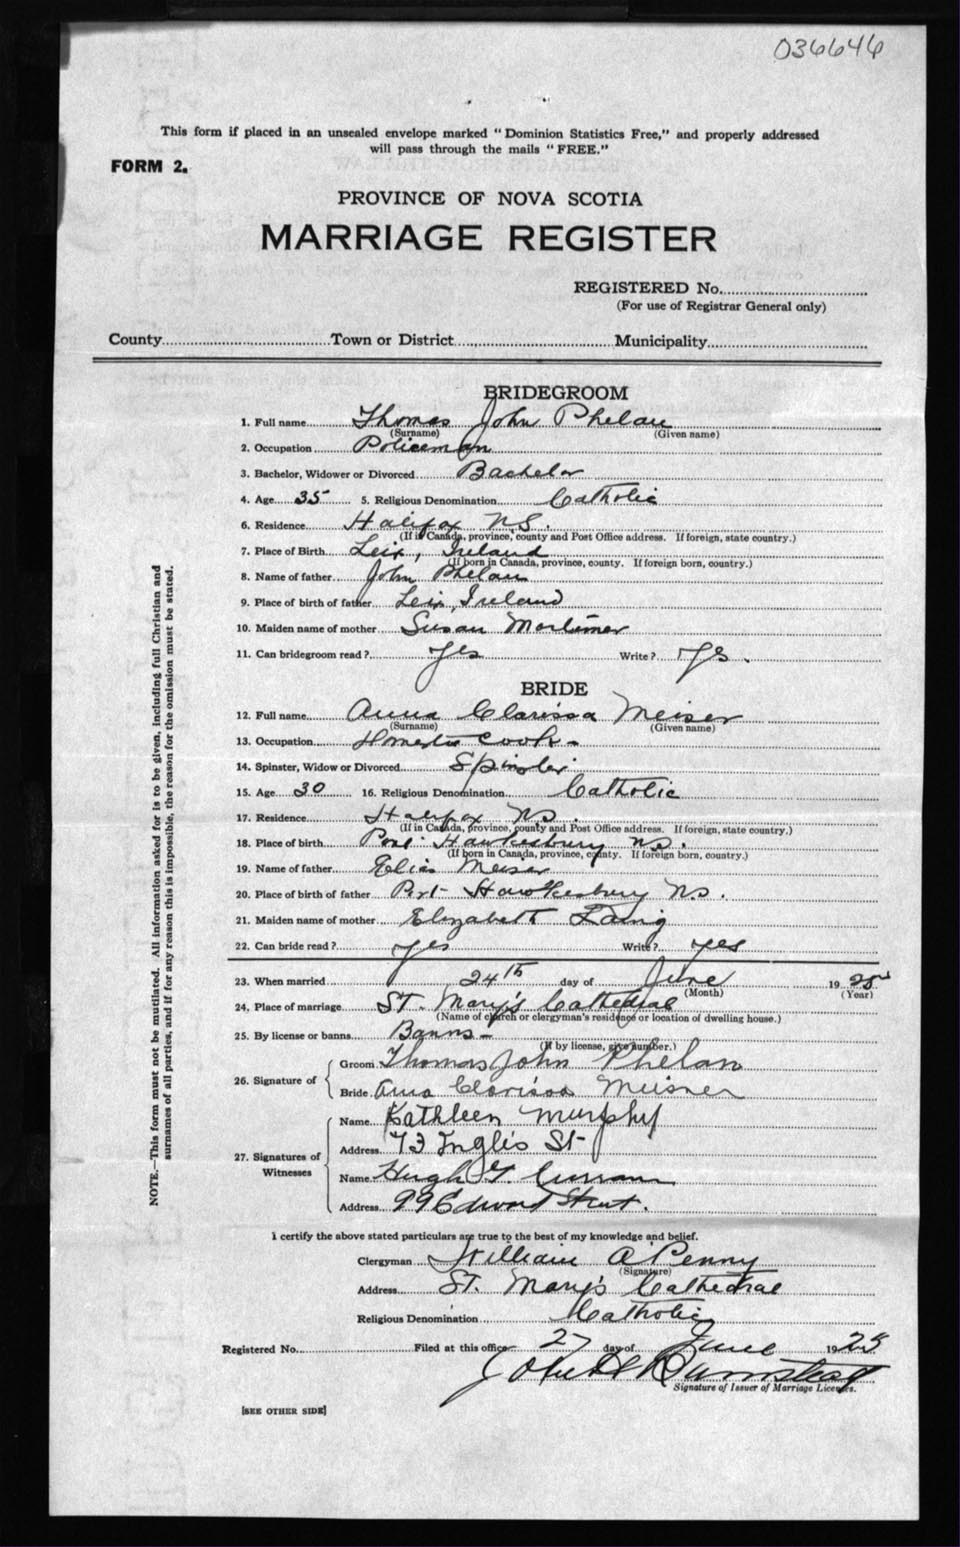 036646
This form if placed in an unsealed envelope marked "Dominion Statistics Free," and properly addressed
will pass through the mails "FREE."
FORM 2.
PROVINCE OF NOVA SCOTIA
MARRIAGE REGISTER
REGISTERED No.
(For use of Registrar General only)
County Town or District Municipality
BRIDEGROOM
1. Full name Thomas John Phelan
(Surname) (Given name)
2. Occupation Policeman
3. Bachelor, Widower or Divorced Bachelor
4. Age 35 5. Religious Denomination Catholic
6. Residence Halifax N.S.
(If in Canada, province, county and Post Office address. If foreign, state country.)
7. Place of Birth Leix, Ireland
(If born in Canada, province, county. If foreign born, country.)
8. Name of father John Phelan
9. Place of birth of father Leix, Ireland
10. Maiden name of mother Susan Mortimer
11. Can bridegroom read? Yes Write? Yes.
BRIDE
12. Full name Anna Clarissa Meiser
(Surname) (Given name)
13. Occupation Domestic Cook
14. Spinster, Widow or Divorced Spinster
15. Age 30 16. Religious Denomination Catholic
17. Residence Halifax N.S.
(If in Canada, province, county and Post Office address. If foreign, state country.)
18. Place of birth Port Hawkesbury N.S.
(If born in Canada, province, county. If foreign born, country.)
19. Name of father Elias Meiser
20. Place of birth of father Port Hawkesbury N.S.
21. Maiden name of mother Elizabeth Laing
22. Can bride read? Yes Write? Yes
23. When married 24th day of June 1925
(Month) (Year)
24. Place of marriage St. Mary's Cathedral
(Name of church or clergyman's residence or location of dwelling house.)
25. By license or banns Banns
(If by license, give number.)
26. Signature of
Groom Thomas John Phelan
Bride Anna Clarissa Meisner
27. Signatures of Witnesses
Name Kathleen Murphy
Address 73 Inglis St
Name Hugh Curran
Address 99 Edward Street.
I certify the above stated particulars are true to the best of my knowledge and belief.
Clergyman William A Penny
(Signature)
Address St. Mary's Cathedral
Religious Denomination Catholic
Registered No. Filed at this office 27 day of June 1925
John
Signature of Issuer of Marriage Licenses.
[SEE OTHER SIDE]
NOTE.—This form must not be mutilated. All information asked for is to be given, including full Christian and
surnames of all parties, and if for any reason this is impossible, the reason for the omission must be stated.